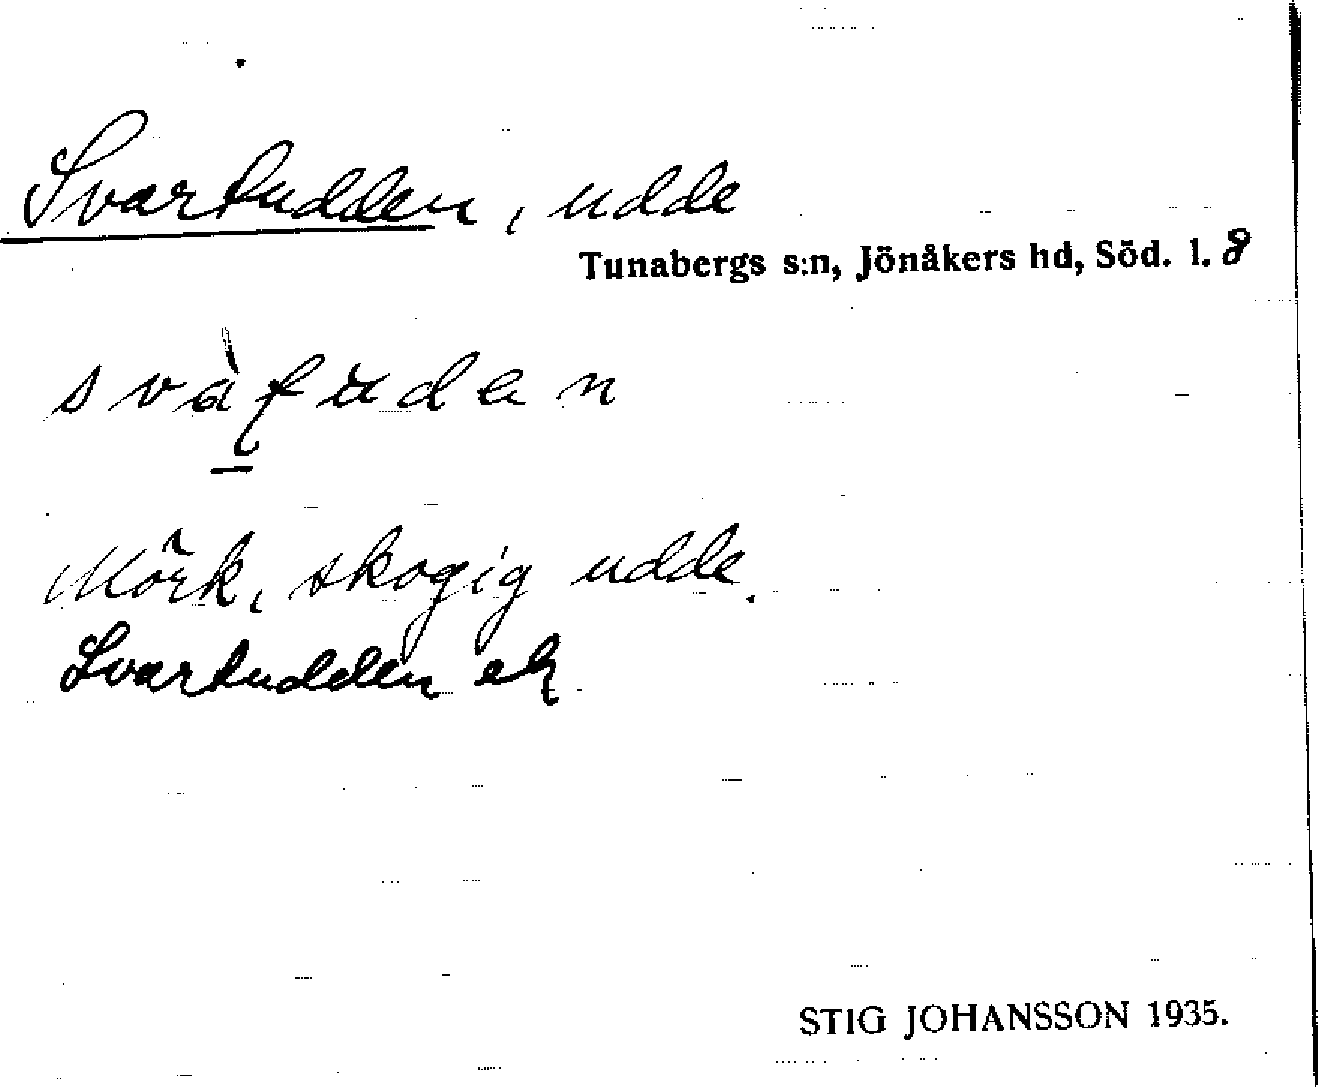 Svartudden, udde
Tunabergs s:n, Jönåkers hd, Söd. l. 8
Mörk, skogig udde.
Svartudden ek
STIG JOHANSSON 1935.